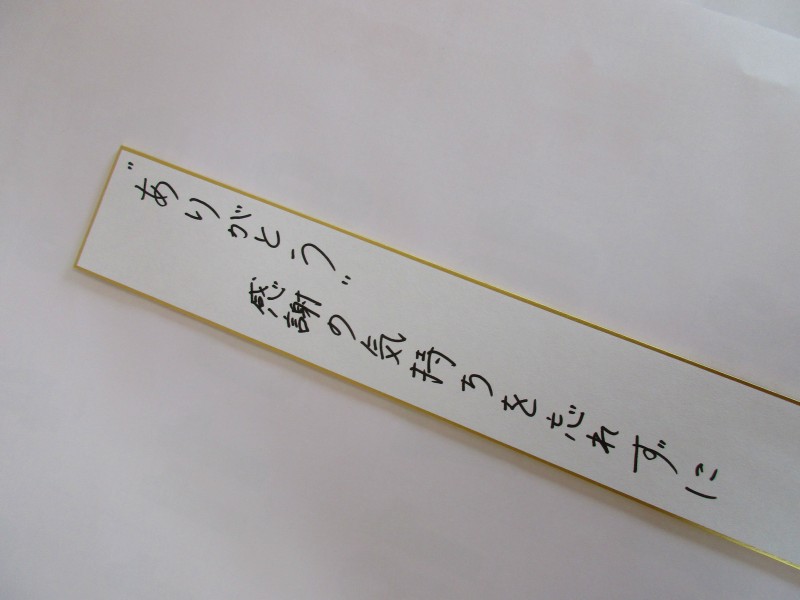 "ありがとう"
感謝の気持ちを忘れずに